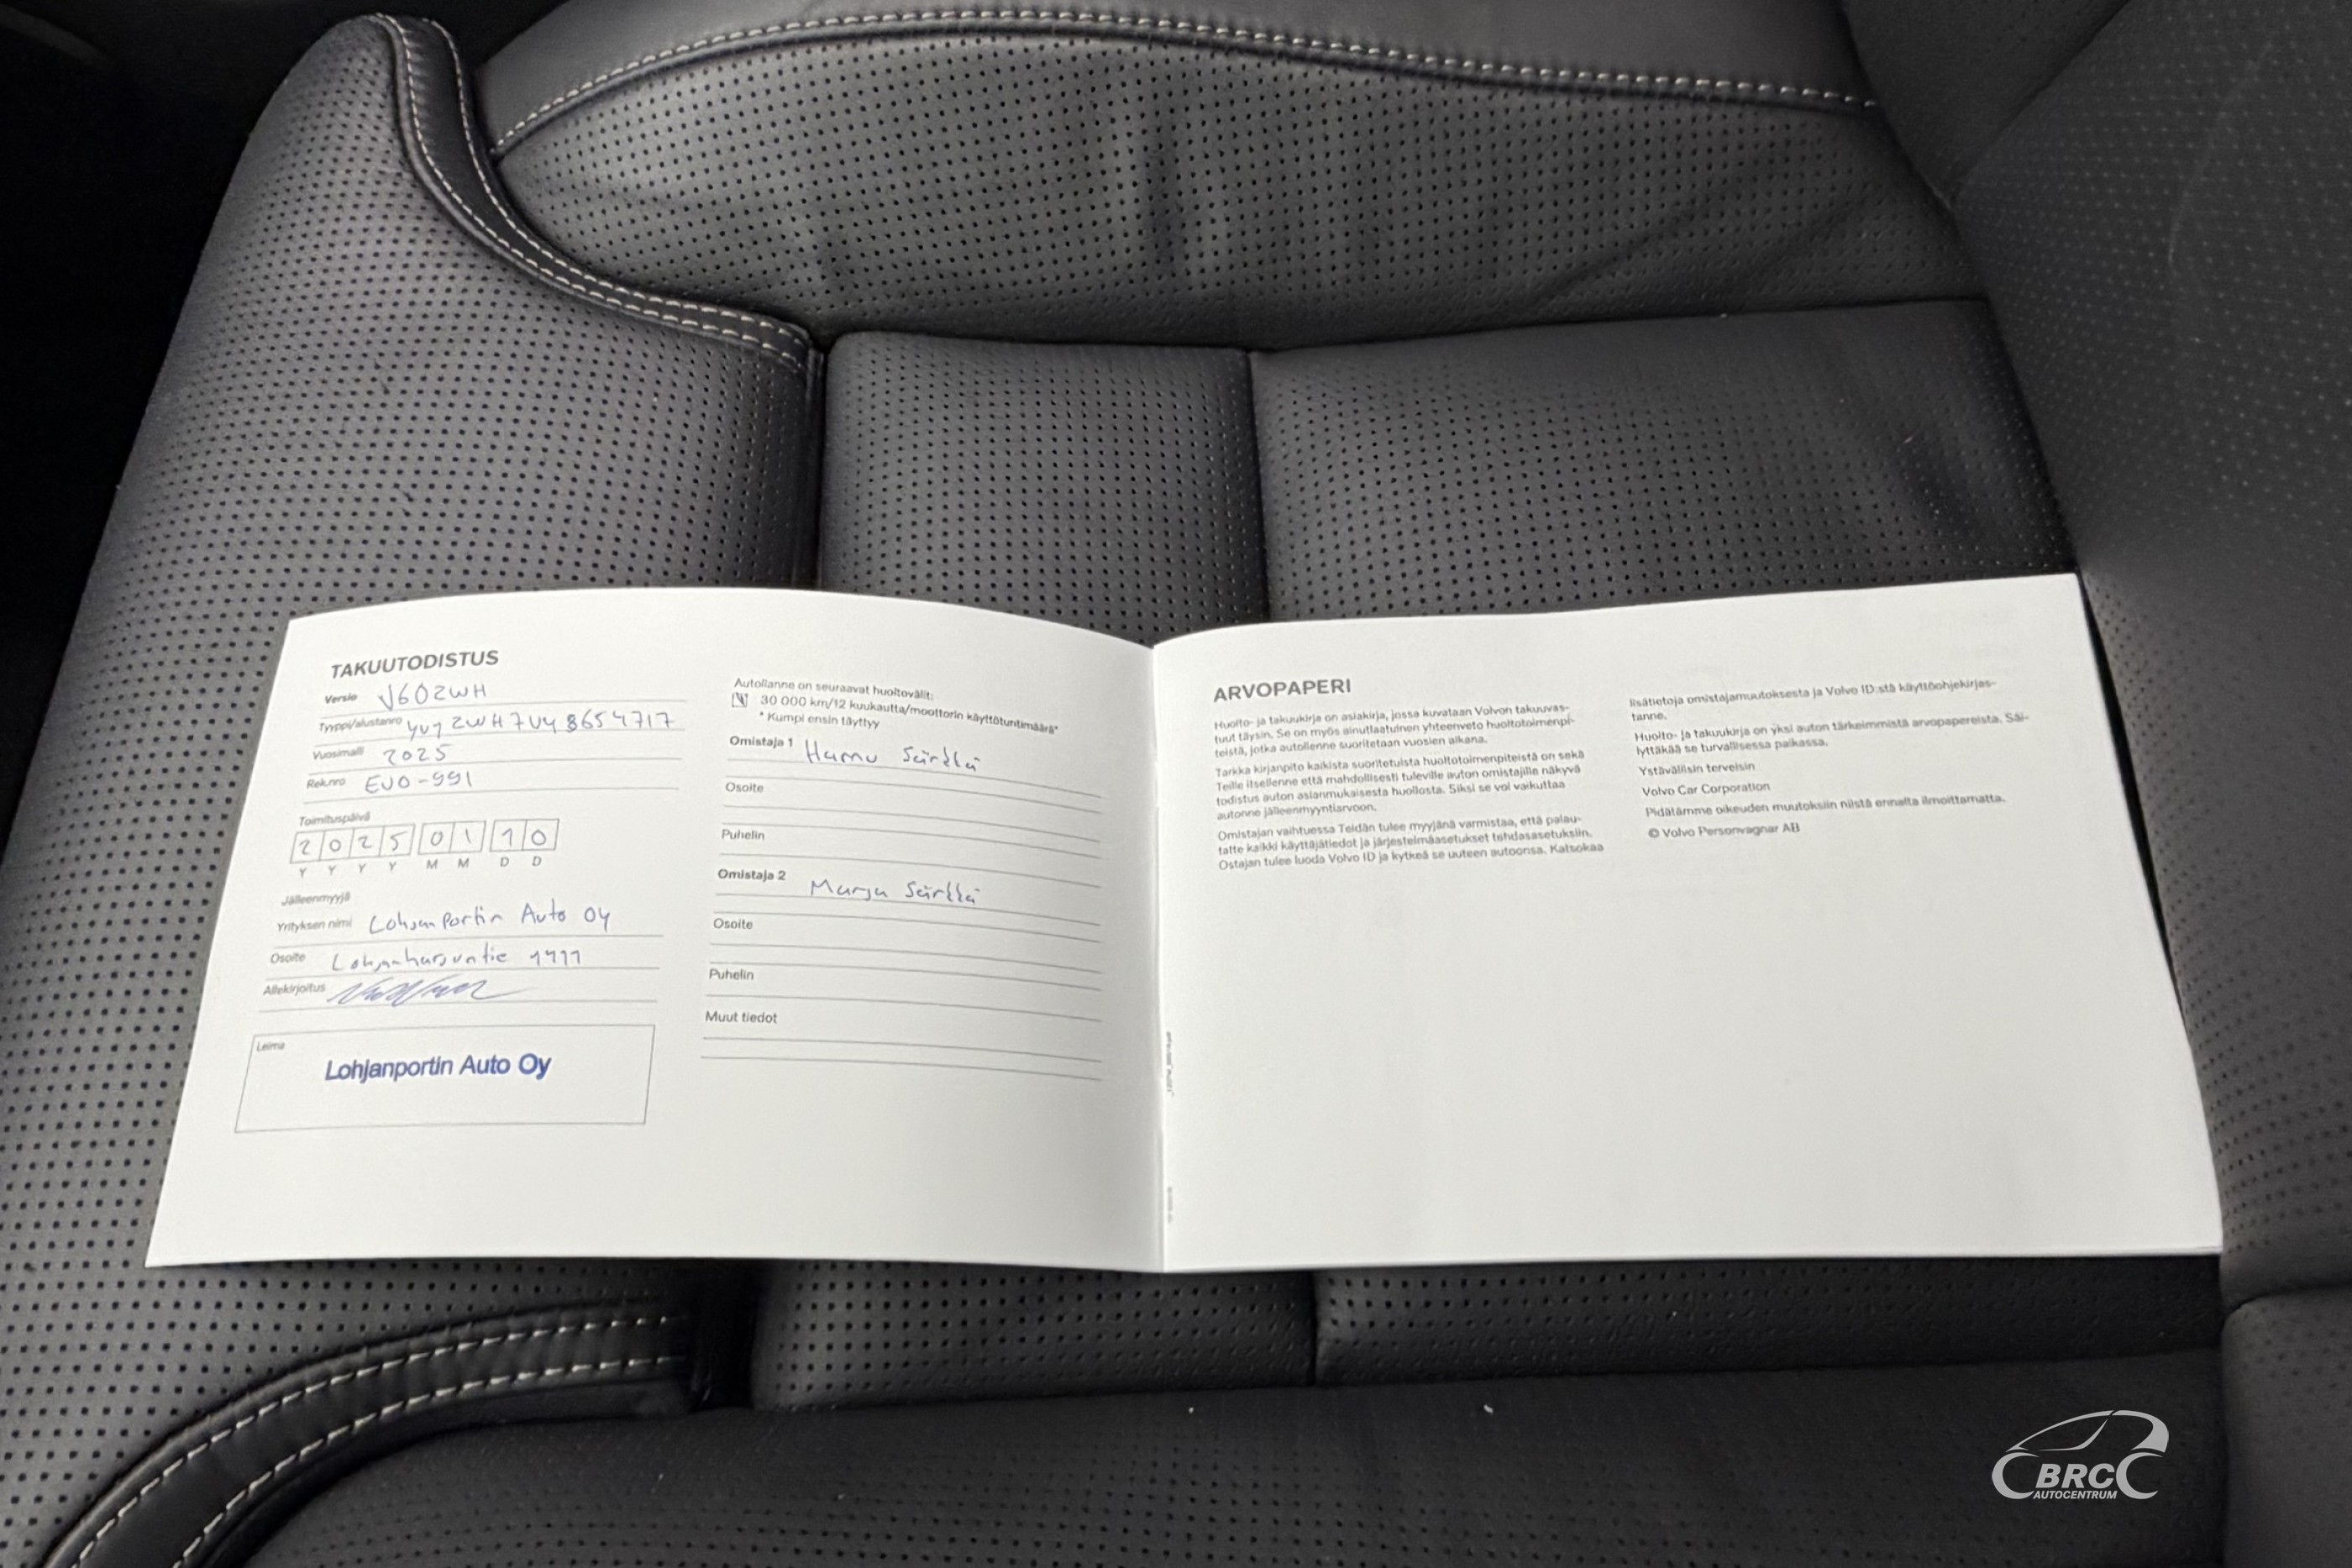 TAKUUTODISTUS
Versio V60ZWH
Tyyppi/alustanro YV1ZWH7UV
Vuosimalli 2025
Rek.nro EUO-991
Toimituspäivä
2 0 2 5 0 1 1 0
Y Y Y Y M M D D
Jälleenmyyjä
Yrityksen nimi Lohjanportin Auto Oy
Osoite Lohjanharjuntie
Allekirjoitus
Leima
Lohjanportin Auto Oy
Autollanne on seuraavat huoltovälit:
30 000 km/12 kuukautta/moottorin käyttötuntimäärä*
* Kumpi ensin täyttyy
Omistaja 1 Hannu Särkkä
Osoite
Puhelin
Omistaja 2 Marja Särkkä
Osoite
Puhelin
Muut tiedot
ARVOPAPERI
Huolto- ja takuukirja on asiakirja, jossa kuvataan Volvon takuuvas-
tuut täysin. Se on myös ainutlaatuinen yhteenveto huoltotoimenpi-
teistä, jotka autollenne suoritetaan vuosien aikana.
Tarkka kirjanpito kaikista suoritetuista huoltotoimenpiteistä on sekä
Teille itsellenne että mahdollisesti tuleville auton omistajille näkyvä
todistus auton asianmukaisesta huollosta. Siksi se voi vaikuttaa
autonne jälleenmyyntiarvoon.
Omistajan vaihtuessa Teidän tulee myyjänä varmistaa, että palau-
tatte kaikki käyttäjätiedot ja järjestelmäasetukset tehdasasetuksiin.
Ostajan tulee luoda Volvo ID ja kytkeä se uuteen autoonsa. Katsokaa
lisätietoja omistajamuutoksesta ja Volvo ID:stä käyttöohjekirjas-
tanne.
Huolto- ja takuukirja on yksi auton tärkeimmistä arvopapereista. Säi-
lyttäkää se turvallisessa paikassa.
Ystävällisin terveisin
Volvo Car Corporation
Pidätämme oikeuden muutoksiin niistä ennalta ilmoittamatta.
© Volvo Personvagnar AB
BRC
AUTOCENTRUM